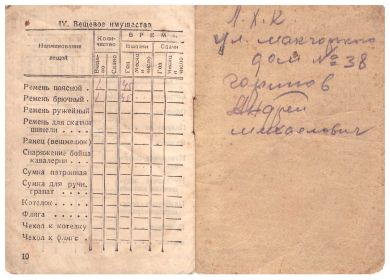 IV. Вещевое имущество
Наименование вещей
Коли-чество
ВРЕМЯ
Выдачи
Сдачи
Выда-но
Сдано
Год
Месяц и число
Год
Месяц и число
Ремень поясной 1 45
Ремень брючный 1 45
Ремень ружейный
Ремень для скатки шинели
Ранец (вещмешок)
Снаряжение бойца кавалерии
Сумка патронная
Сумка для ручн. гранат
Котелок
Фляга
Чехол к котелку
Чехол к фляге
10
Л.К.К
ул.
дом № 38
Андрей